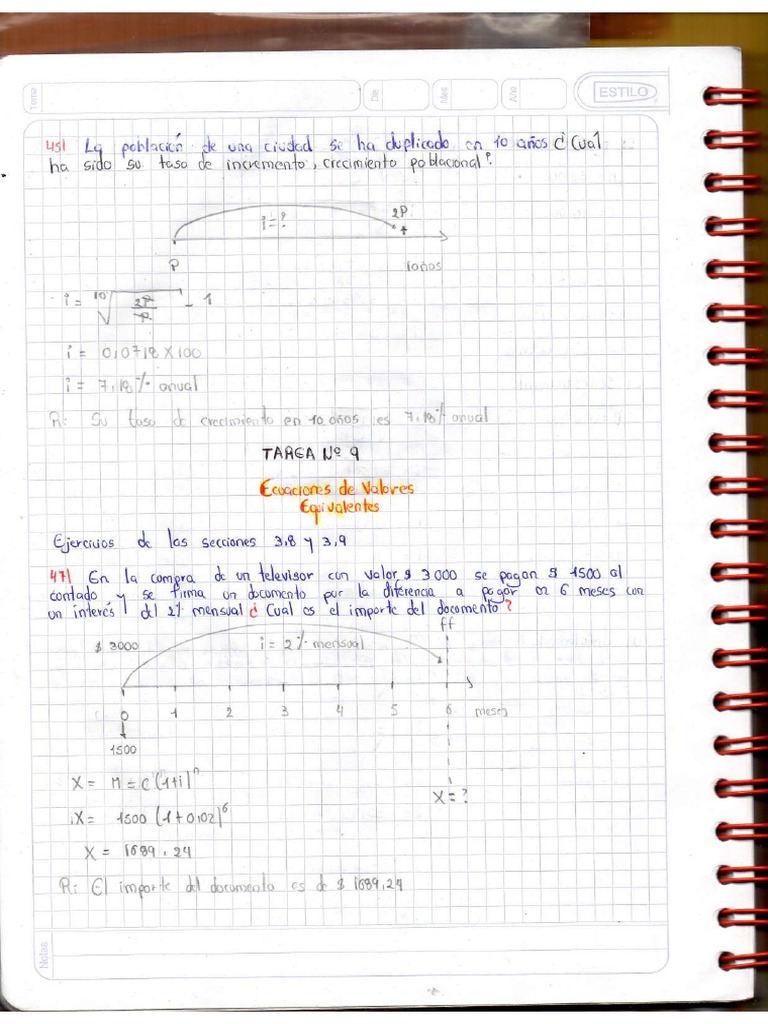 Tema
Dia
Mes
Año
ESTILO
45) La población de una ciudad se ha duplicado en 10 años ¿Cual
ha sido su tasa de incremento, crecimiento poblacional?
i=?
2P
P
10 años
i = 10√(2P/P) - 1
i = 0,0718 X 100
i = 7,18% anual
R: Su tasa de crecimiento en 10 años es 7,18% anual
TAREA Nº 9
Ecuaciones de Valores
Equivalentes
Ejercicios de las secciones 3,8 y 3,9
47) En la compra de un televisor con valor $ 3000 se pagan $ 1500 al
contado y se firma un documento por la diferencia a pagar en 6 meses con
un interés del 2% mensual ¿ Cual es el importe del documento?
ff
$ 3000
i = 2% mensual
0 1 2 3 4 5 6 meses
1500
X = M = C (1+i)^n
X = ?
X = 1500 (1+0,02)^6
X = 1689.24
R: El importe del documento es de $ 1689.24
Notas